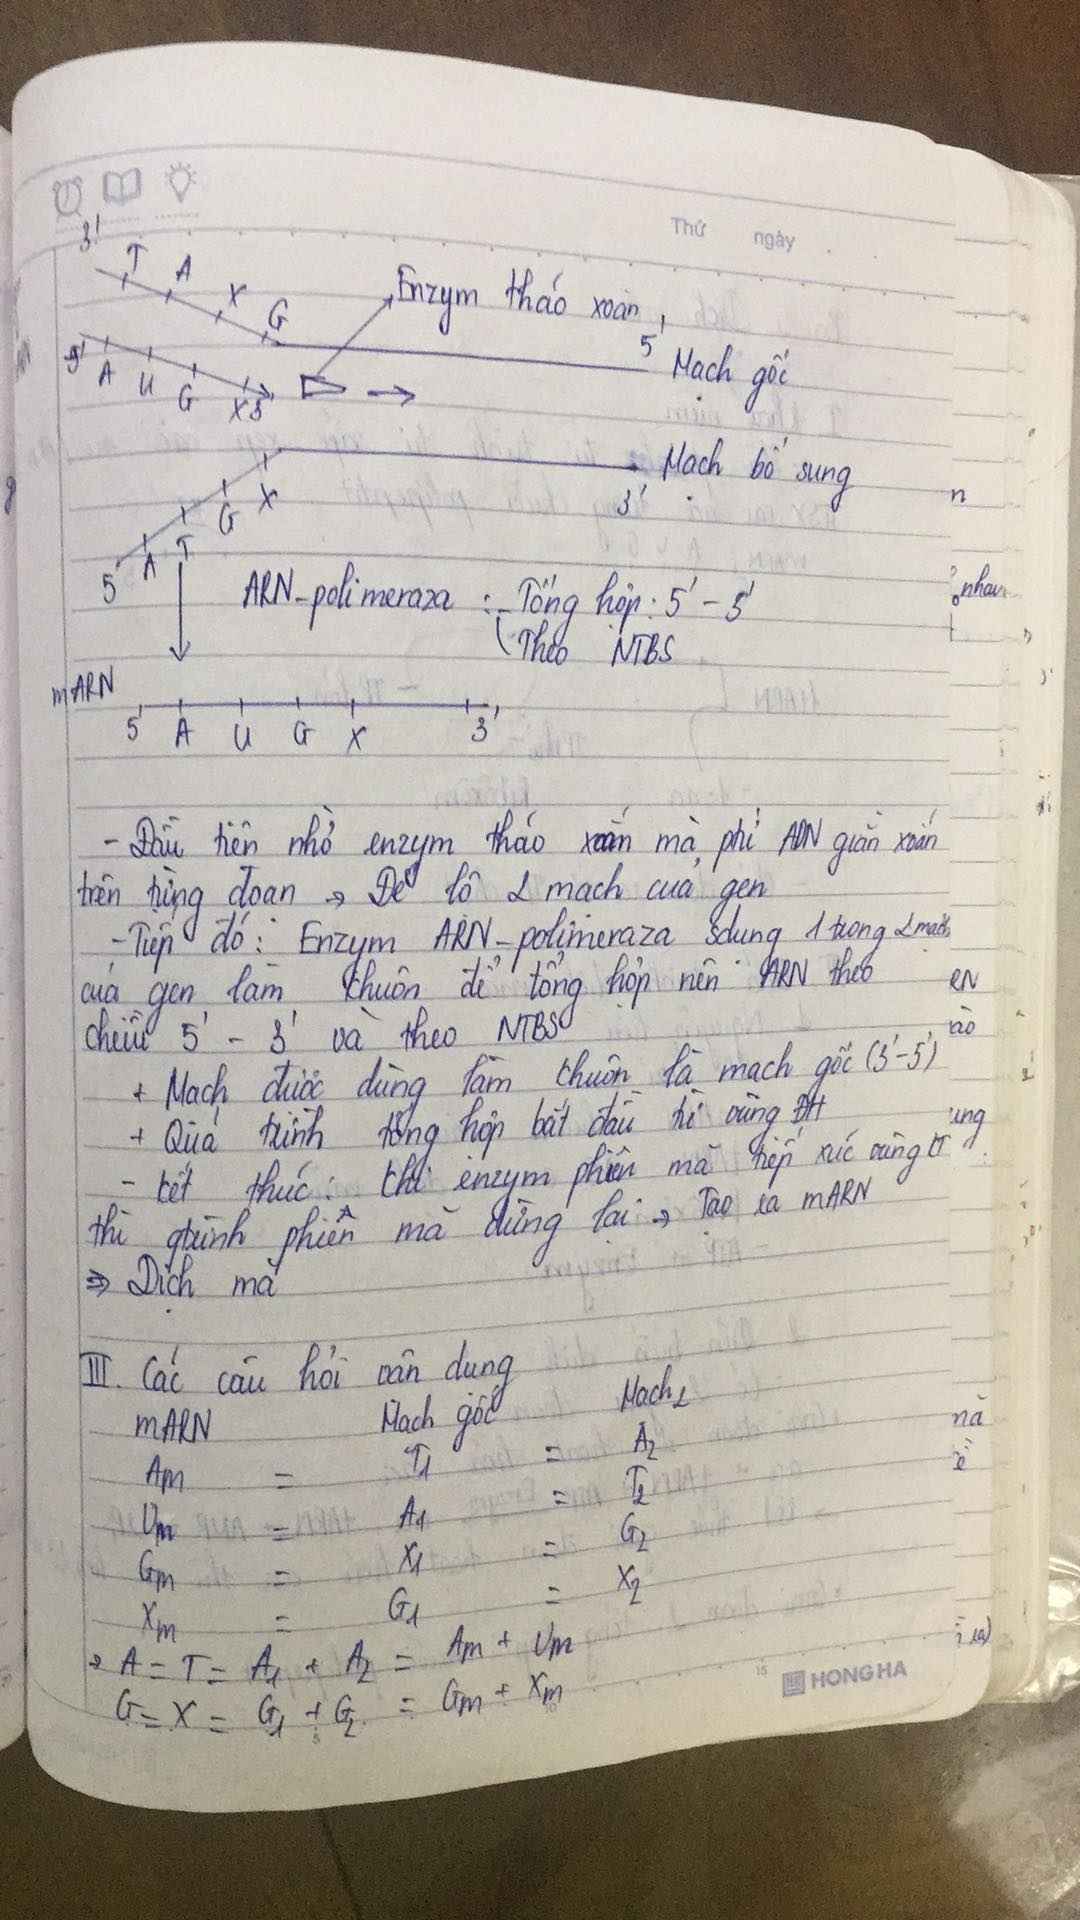 Thứ ngày
3'
T A X G
Enzym tháo xoắn
5'
Mạch gốc
A U G X 3'
Mạch bổ sung
3'
5' A T G X
ARN-polimeraza : - Tổng hợp: 5' - 3'
Theo NTBS
mARN
5' A U G X 3'
- Đầu tiên nhờ enzym tháo xoắn mà ptử ADN giãn xoắn
trên từng đoạn → Để lộ 2 mạch của gen
- Tiếp đó: Enzym ARN-polimeraza sdụng 1 trong 2 mạch
của gen làm khuôn để tổng hợp nên ARN theo
chiều 5' - 3' và theo NTBS
+ Mạch được dùng làm khuôn là mạch gốc (3'-5')
+ Quá trình tổng hợp bắt đầu từ vùng ĐH
- Kết thúc: Khi enzym phiên mã tiếp xúc vùng KT
thì qtrình phiên mã dừng lại → Tạo ra mARN
⇒ Dịch mã
III. Các câu hỏi vận dụng
mARN Mạch gốc Mạch 2
Am = T1 = A2
Um = A1 = T2
Gm = X1 = G2
Xm = G1 = X2
→ A = T = A1 + A2 = Am + Um
G = X = G1 + G2 = Gm + Xm
15 HONG HA